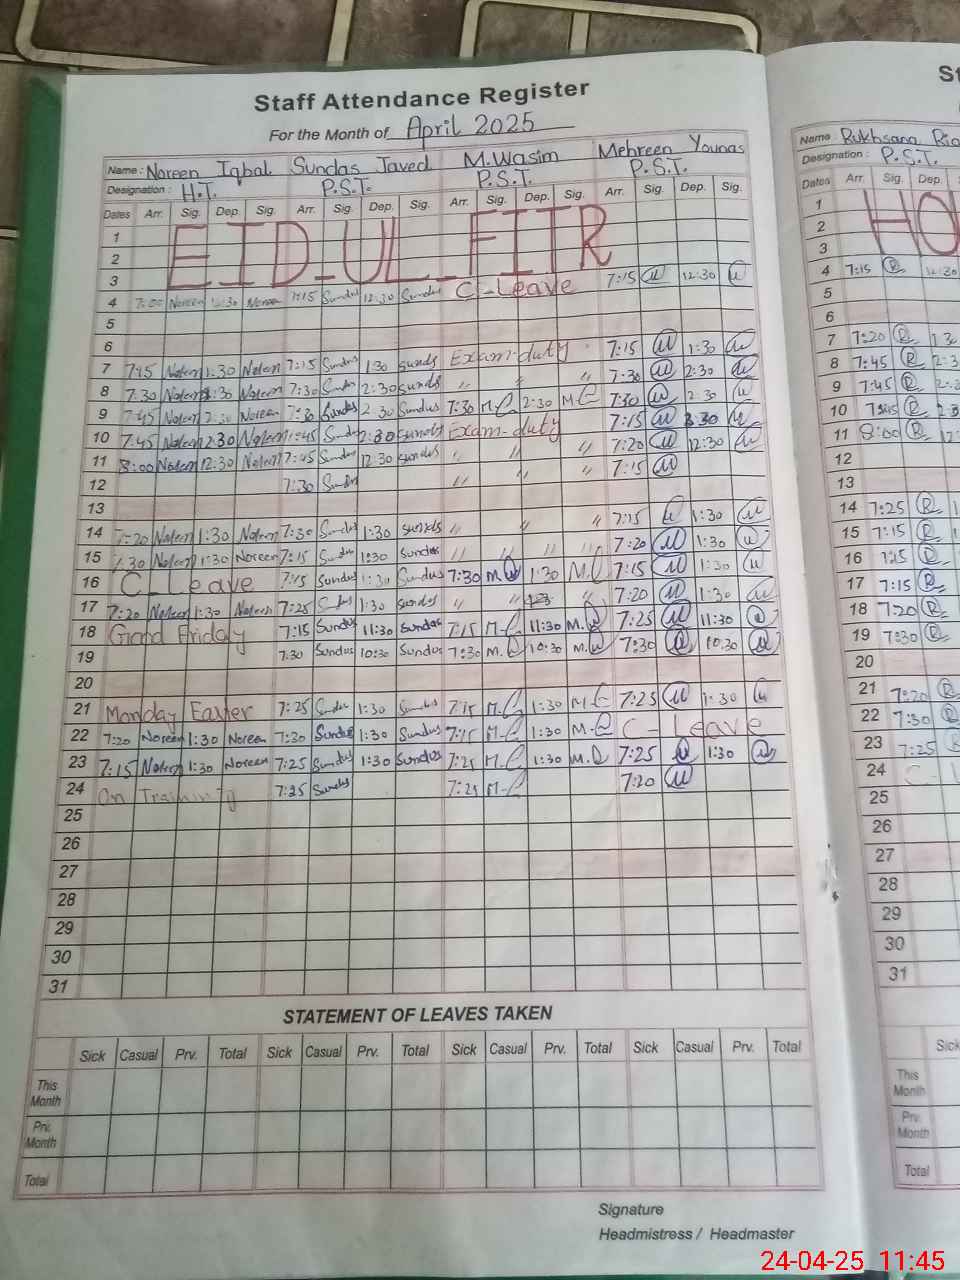 Staff Attendance Register
For the Month of April 2025
Name : Noreen Iqbal Sundas Javed M.Wasim Mehreen Younas
Designation : H.T. P.S.T. P.S.T. P.S.T.
Dates Arr. Sig. Dep. Sig. Arr. Sig. Dep. Sig. Arr. Sig. Dep. Sig. Arr. Sig. Dep. Sig.
EID-UL-FITR
1
2
3
4 7:00 Noreen 12:30 Noreen 7:15 Sundus 12:30 Sundus C-Leave 7:15 12:30
5
6
7 7:45 Noreen 1:30 Noreen 7:15 Sundus 1:30 Sundus Exam-duty 7:15 1:30
8 7:30 Noreen 1:30 Noreen 7:30 Sundus 2:30 Sundus " " " 7:30 2:30
9 7:45 Noreen 2:30 Noreen 7:30 Sundus 2:30 Sundus 7:30 2:30 7:30 2:30
10 7:45 Noreen 2:30 Noreen 7:45 Sundus 2:30 Sundus Exam-duty 7:15
11 8:00 Noreen 12:30 Noreen 7:45 Sundus 12:30 Sundus " " " 7:20 12:30
12 7:30 Sundus " " " 7:15
13
14 7:20 Noreen 1:30 Noreen 7:30 Sundus 1:30 Sundus " " " 7:15 1:30
15 7:30 Noreen 1:30 Noreen 7:15 Sundus 1:30 Sundus " " " " 7:20 1:30
16 C-Leave 7:15 Sundus 1:30 Sundus 7:30 1:30 7:15 1:30
17 7:20 Noreen 1:30 Noreen 7:25 Sundus 1:30 Sundus " " " 7:20 1:30
18 Good Friday 7:15 Sundus 11:30 Sundus 7:15 11:30 7:25 11:30
19 7:30 Sundus 10:30 Sundus 7:30 10:30 7:30 10:30
20
21 Monday Easter 7:25 Sundus 1:30 Sundus 7:15 1:30 7:25 1:30
22 7:20 Noreen 1:30 Noreen 7:30 Sundus 1:30 Sundus 7:15 1:30 C-Leave
23 7:15 Noreen 1:30 Noreen 7:25 Sundus 1:30 Sundus 7:25 1:30 7:25 1:30
24 On Training 7:25 Sundus 7:25 7:20
25
26
27
28
29
30
31
STATEMENT OF LEAVES TAKEN
Sick Casual Prv. Total Sick Casual Prv. Total Sick Casual Prv. Total Sick Casual Prv. Total
This Month
Prv. Month
Total
Signature
Headmistress / Headmaster
St
Name : Rukhsana
Designation : P.S.T.
Dates Arr. Sig. Dep.
HO
1
2
3
4 7:15 12:30
5
6
7 7:20
8 7:45
9 7:45
10 7:45
11 8:00
12
13
14 7:25
15 7:15
16 7:25
17 7:15
18 7:20
19 7:30
20
21 7:20
22 7:30
23 7:25
24
25
26
27
28
29
30
31
Sick
This Month
Prv. Month
Total
24-04-25 11:45